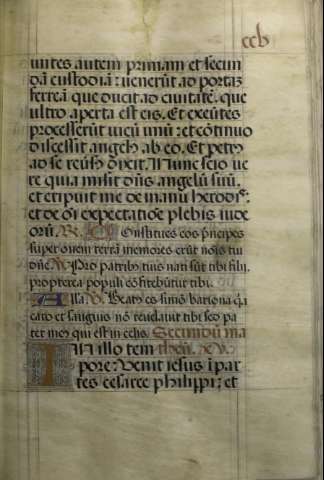 ccb
untes autem primam et secun
dā custodiā: venerūt ad portaʒ
ferreā que ducit ad civitatē. que
ultro aperta est eis. Et exeūtes
processerūt vicū unū: et cōtinuo
discessit angelus ab eo. Et petrus
ad se reūsus dixit. Nunc scio ve
re quia misit dñs angelū suū.
et eripuit me de manu herodis:
et de oī expectatiōe plebis iude
orū. R. Constitues eos pñcipes
super omnem terrā memores erūt noīs tui
dñe. V. Pro patribus tuis nati sūt tibi filii.
propterea populi cōfitebūtur tibi.
Alla. V. Beatus es simō bariona qa
caro et sanguis nō revelavit tibi sed pa
ter meus qui est in celis. Secundū ma
In illo tem theū.
pore: Venit iesus ī par
tes cesaree philippi: et